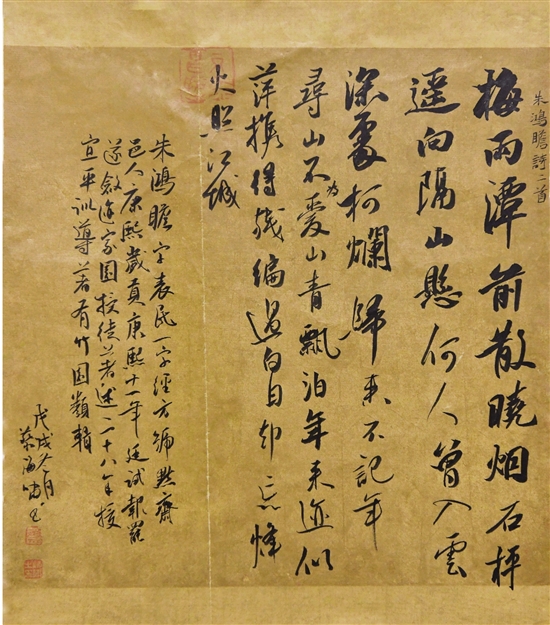 朱鴻瞻詩二首
梅雨潭前散曉烟石枰
遥向隔山懸何人曾入雲
深處柯爛歸來不記年
尋山不為愛山青飄泊年來迹似
萍携得殘編過白日却忘烽
火照江城
朱鴻瞻字表民一字經方號默齋
邑人康熙歲貢康熙十一年廷試報罷
遂斂迹家園授徒著述二十八年授
宣平訓導著有竹园類輯
戊戌